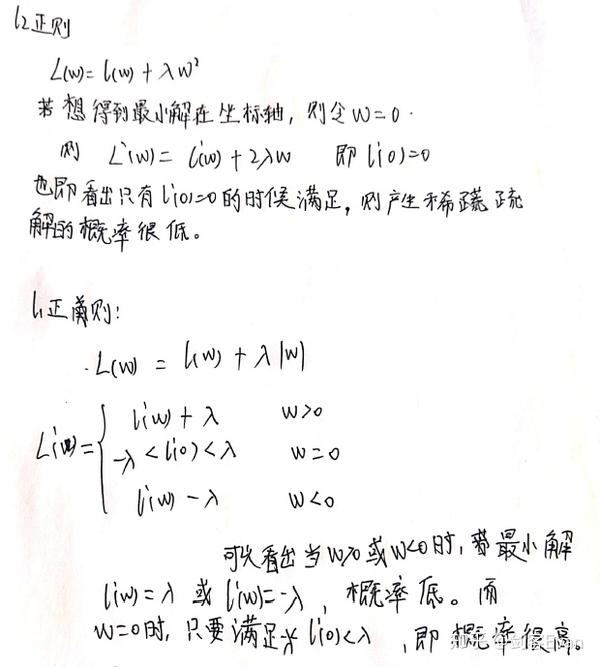 l₂正则
L(w)= l(w) + λw²
若想得到最小解在坐标轴，则令w=0.
则 L'(w)= l'(w) + 2λw 即 l'(0)=0
也即看出只有l'(0)=0的时候满足，则产生稀疏疏
解的概率很低。
l₁正则:
L(w) = l(w) + λ|w|
l'(w) + λ w>0
L'(w)= -λ < l'(0) < λ w=0
l'(w) - λ w<0
可以看出当w>0或w<0时，若最小解
l'(w)=λ 或 l'(w)=-λ，概率低。而
w=0时，只要满足 l'(0)<λ，即概率很高。
知乎 @剑客Evan